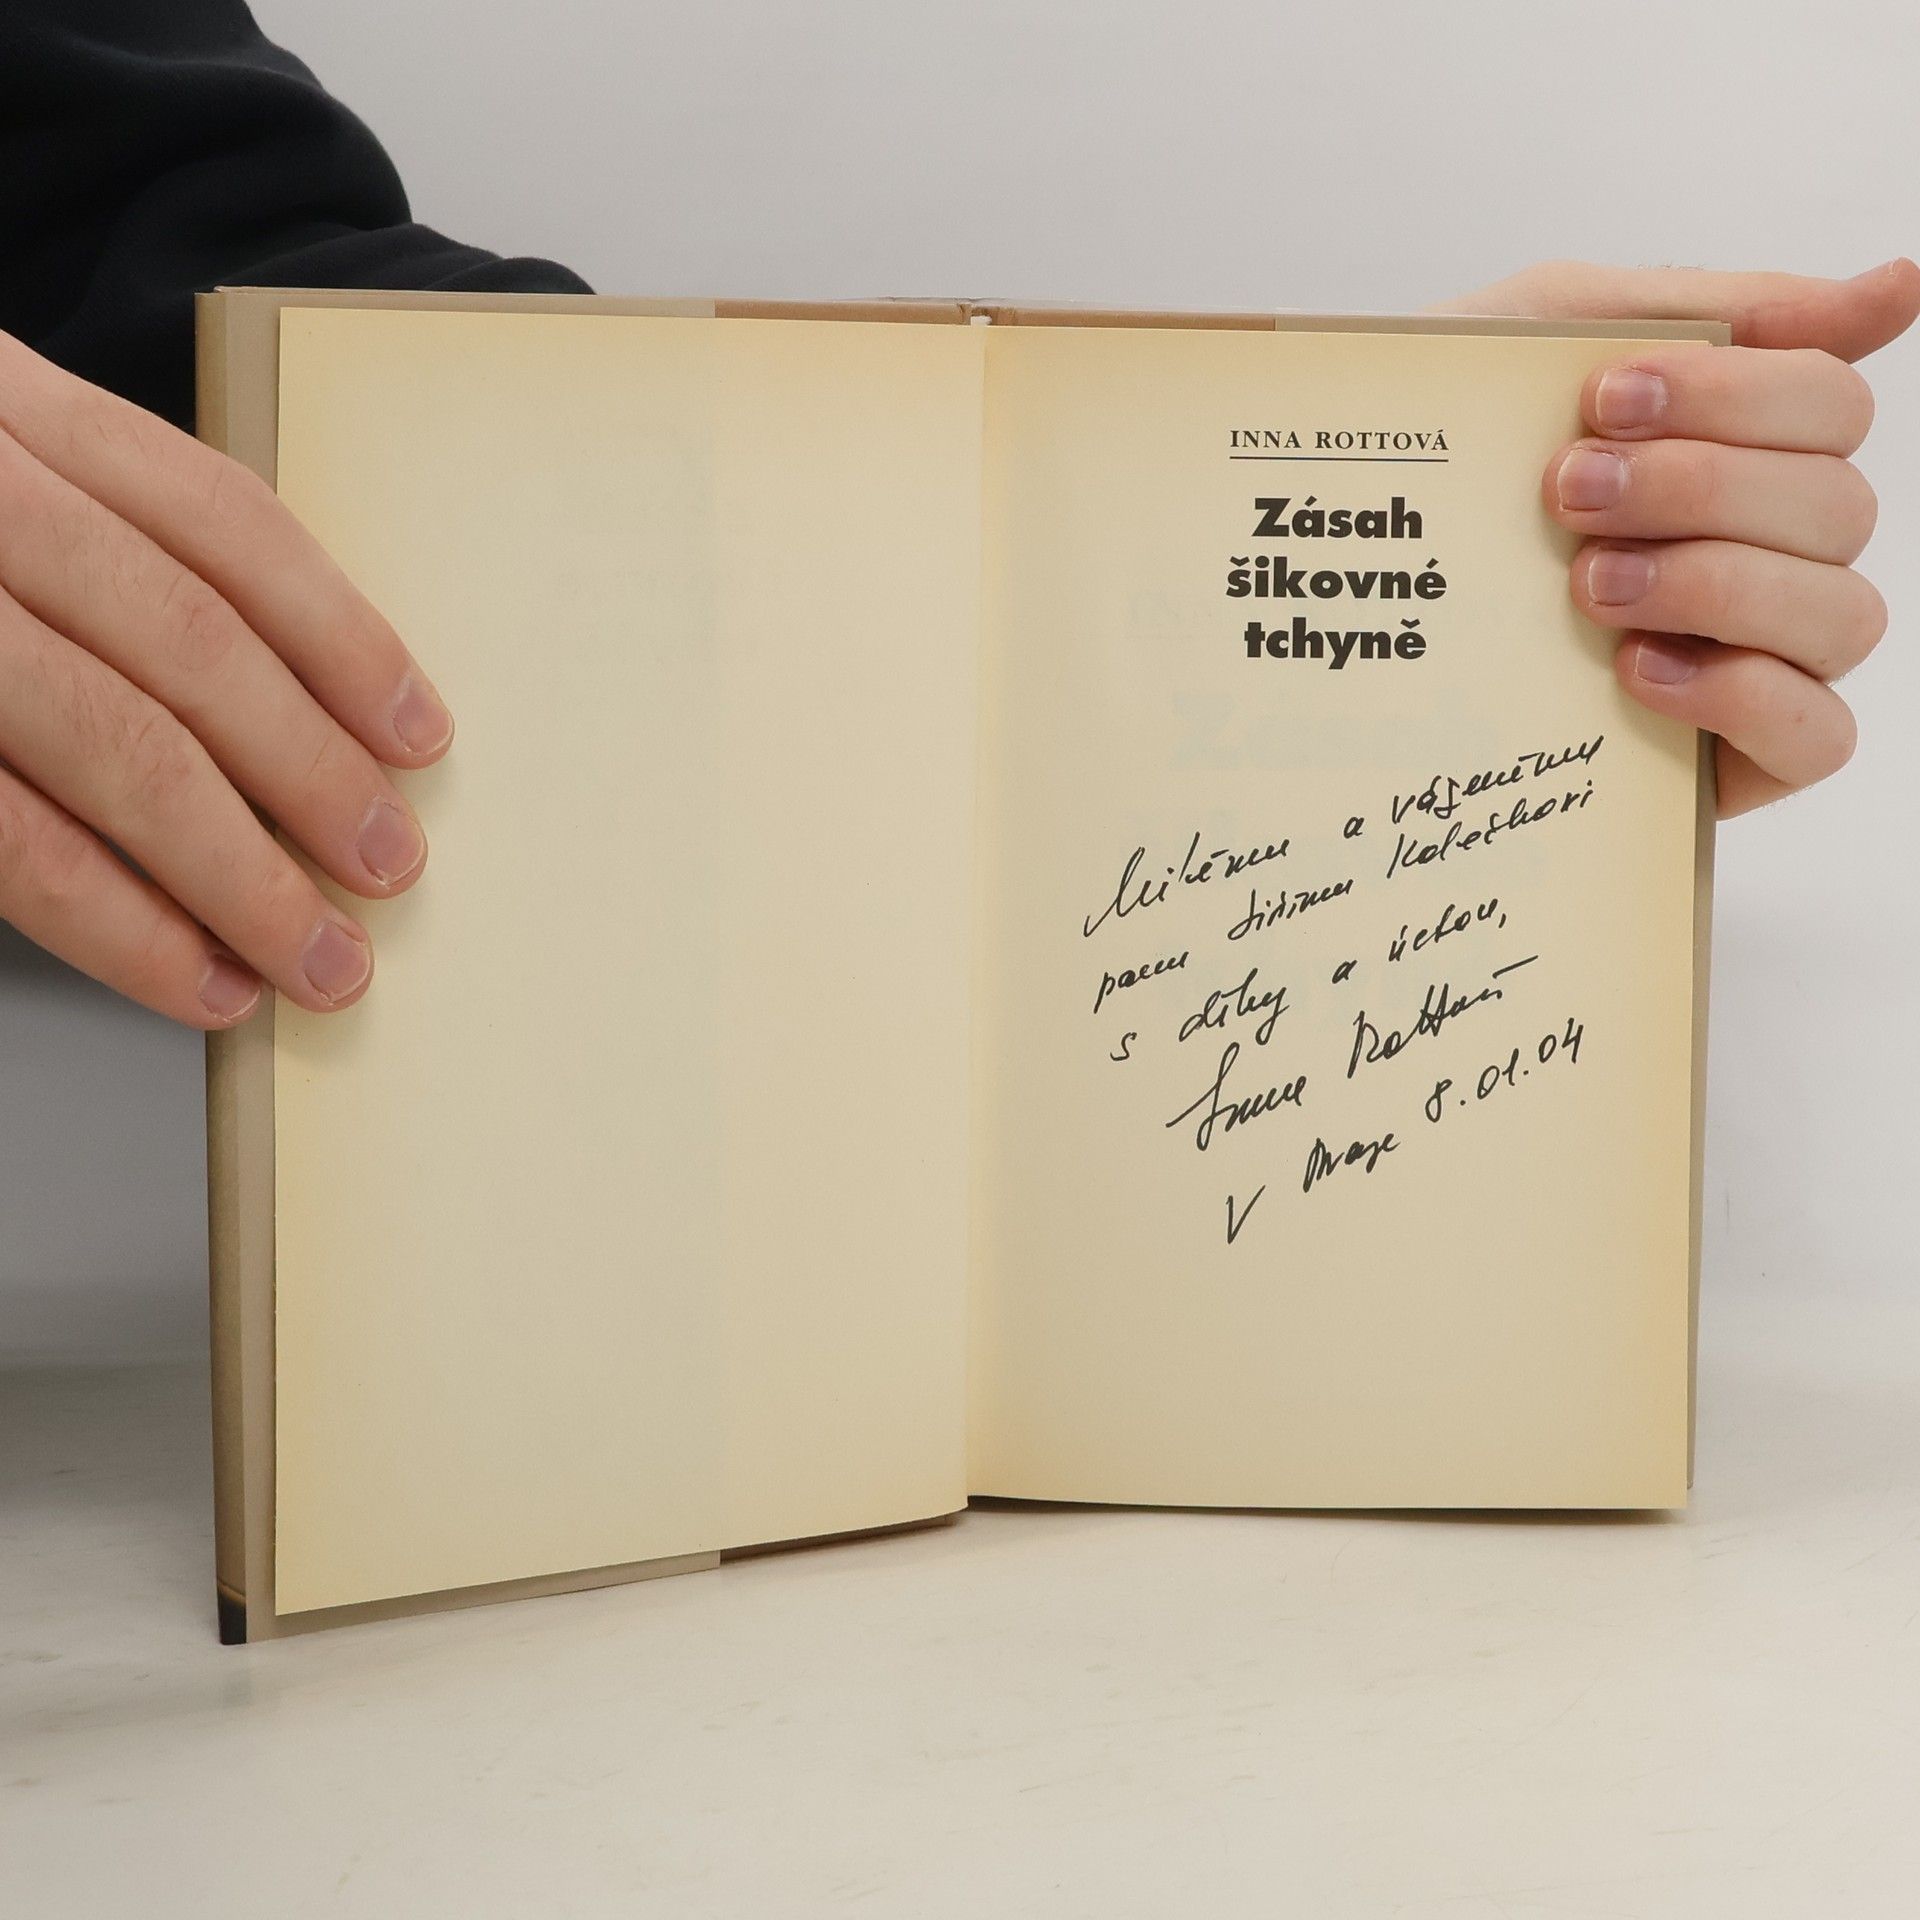 INNA ROTTOVÁ
Zásah
šikovné
tchyně
Milému a váženému
panu Jiřímu Kolečkovi
s díky a úctou,
Inna Rottová
V Praze 8.01.04